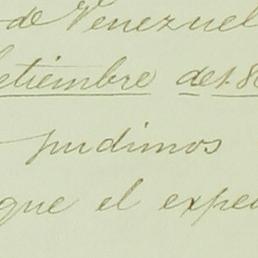 de Venezuel
etiembre de 18
pudimos
que el expe